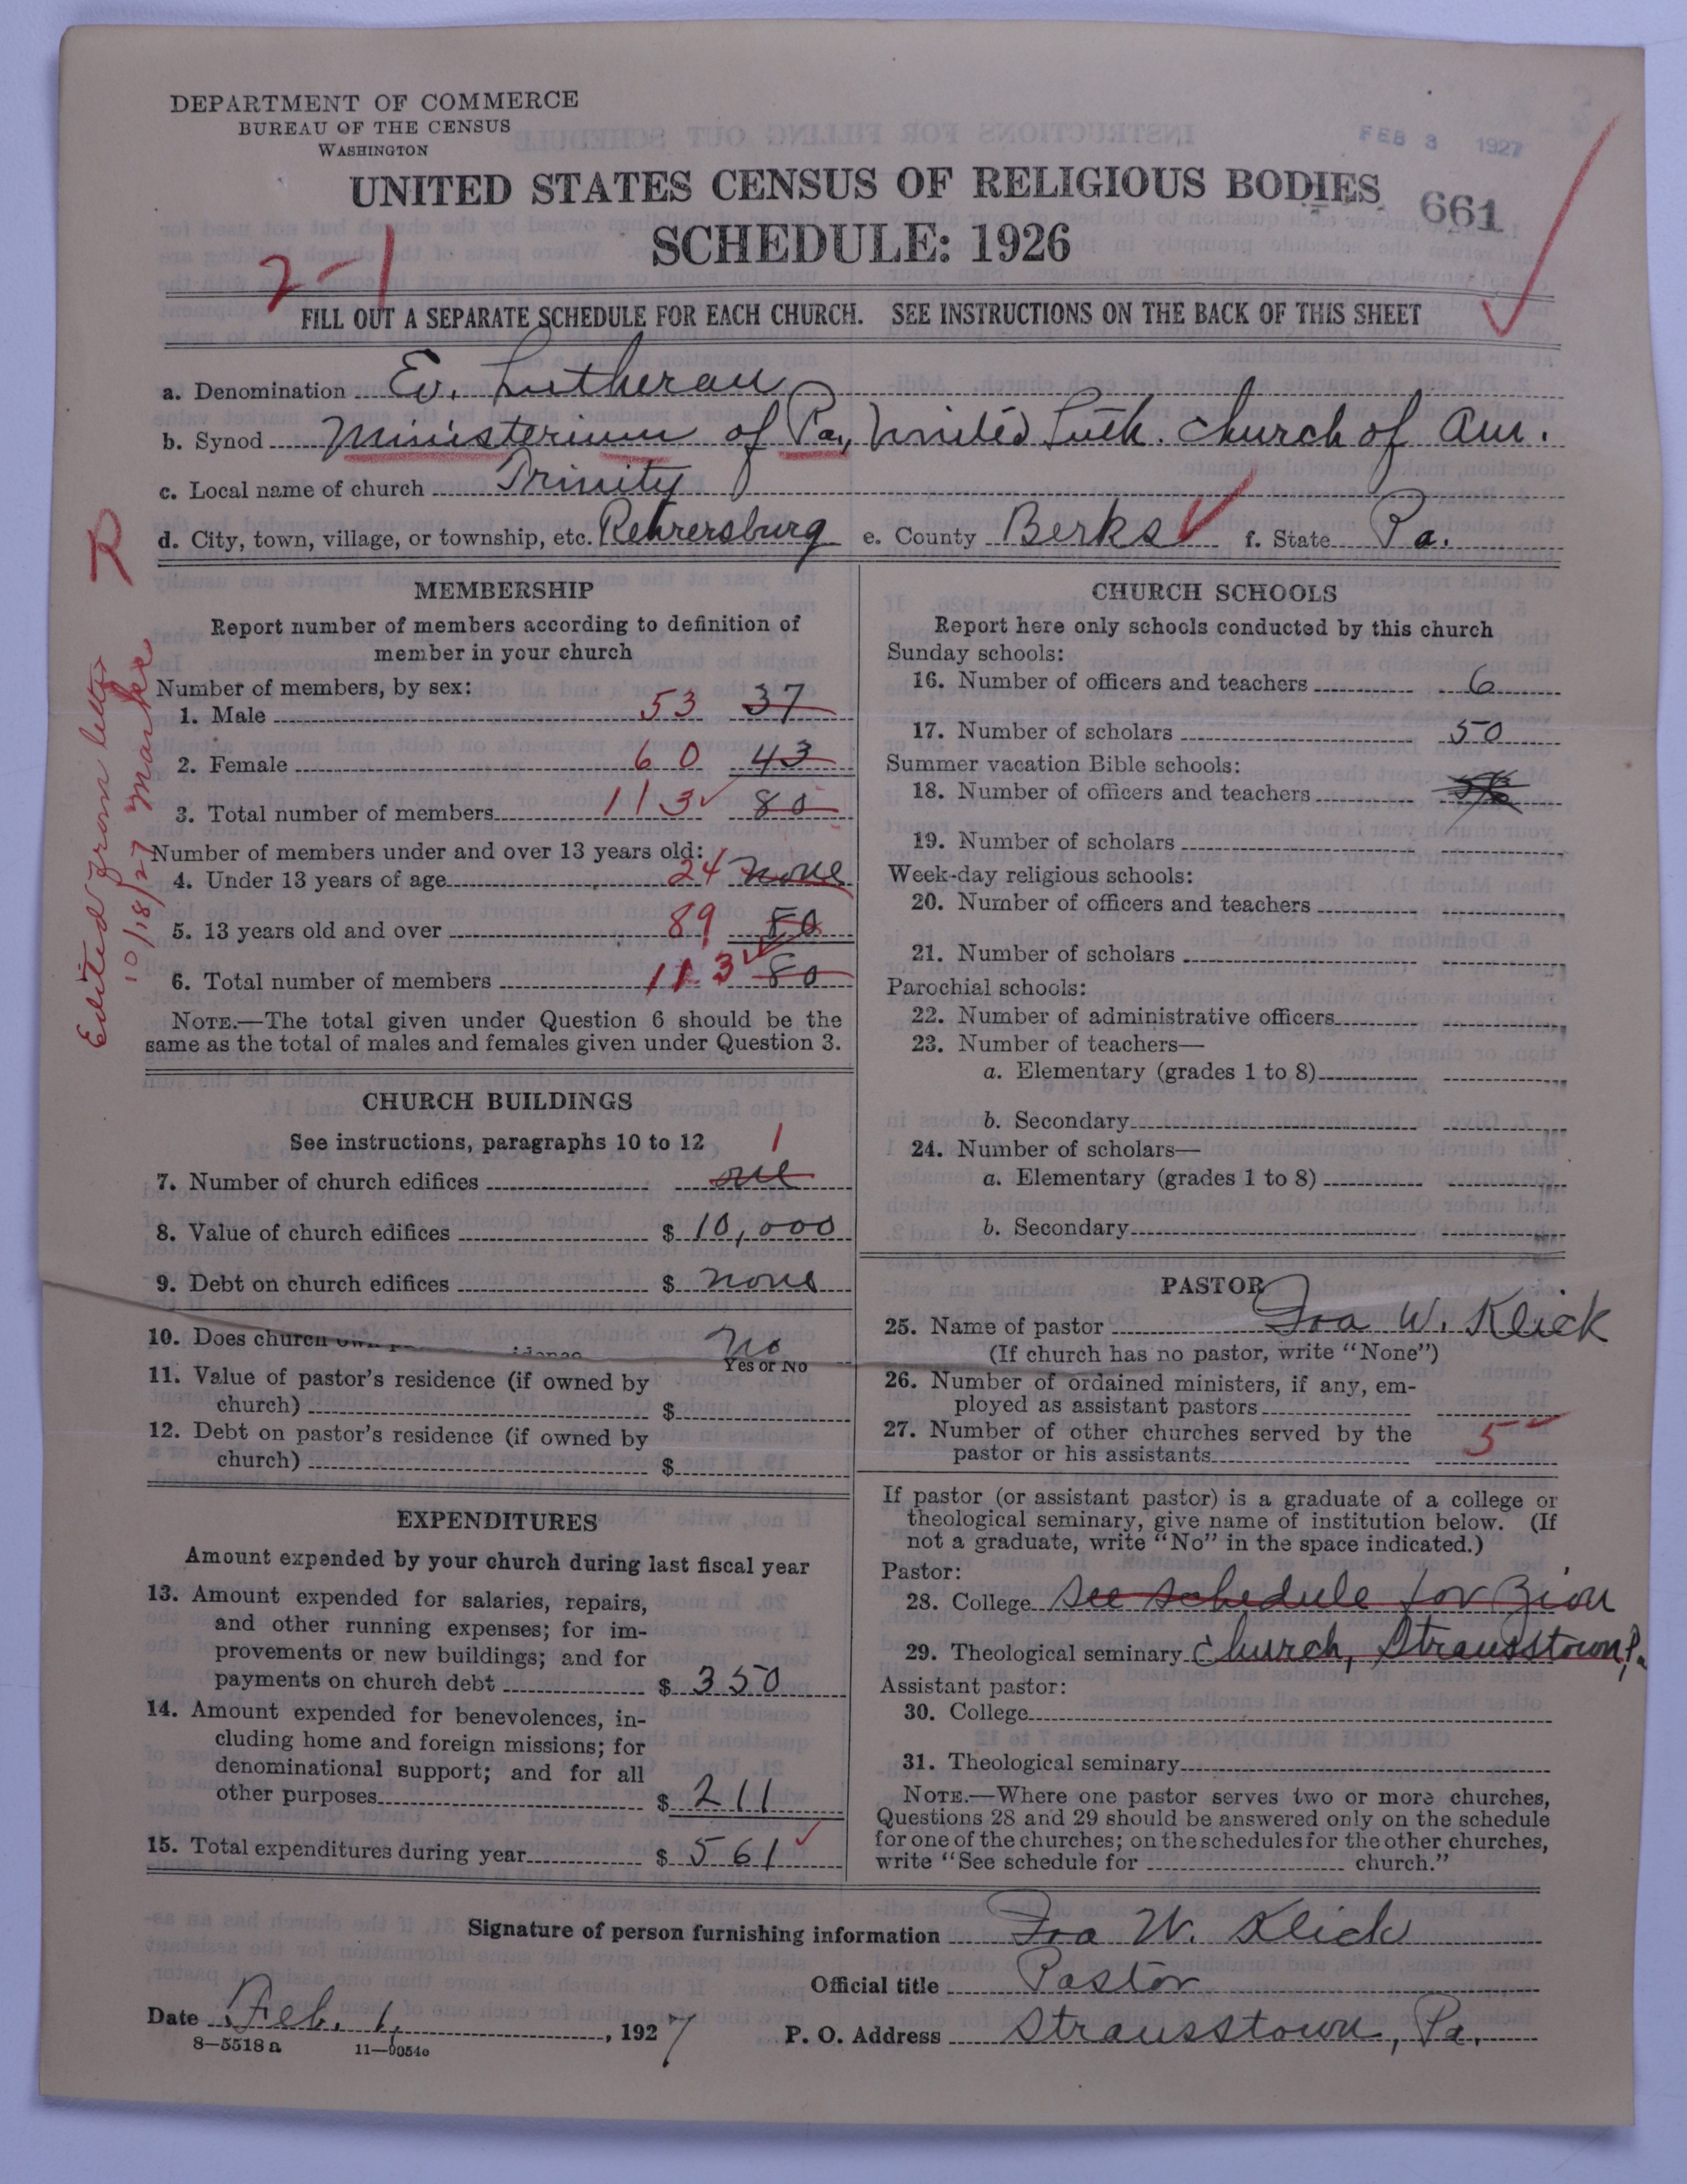 DEPARTMENT OF COMMERCE
BUREAU OF THE CENSUS
WASHINGTON
FEB 3 1927
UNITED STATES CENSUS OF RELIGIOUS BODIES
661
SCHEDULE: 1926
2-1
FILL OUT A SEPARATE SCHEDULE FOR EACH CHURCH. SEE INSTRUCTIONS ON THE BACK OF THIS SHEET
a. Denomination Ev. Lutheran
b. Synod Ministerium of Pa., United Luth. Church of Am.
c. Local name of church Trinity
d. City, town, village, or township, etc. Rehrersburg e. County Berks f. State Pa.
R
Edited from letter
10/18/27
MEMBERSHIP
Report number of members according to definition of
member in your church
Number of members, by sex:
1. Male 53 37
2. Female 60 43
3. Total number of members 113 80
Number of members under and over 13 years old:
4. Under 13 years of age 24 none
5. 13 years old and over 89 80
6. Total number of members 113 80
NOTE.—The total given under Question 6 should be the
same as the total of males and females given under Question 3.
CHURCH BUILDINGS
See instructions, paragraphs 10 to 12
1
7. Number of church edifices one
8. Value of church edifices $ 10,000
9. Debt on church edifices $ none
10. Does church No
Yes or No
11. Value of pastor's residence (if owned by
church) $
12. Debt on pastor's residence (if owned by
church) $
EXPENDITURES
Amount expended by your church during last fiscal year
13. Amount expended for salaries, repairs,
and other running expenses; for im-
provements or new buildings; and for
payments on church debt $ 350
14. Amount expended for benevolences, in-
cluding home and foreign missions; for
denominational support; and for all
other purposes $ 211
15. Total expenditures during year $ 561
CHURCH SCHOOLS
Report here only schools conducted by this church
Sunday schools:
16. Number of officers and teachers 6
17. Number of scholars 50
Summer vacation Bible schools:
18. Number of officers and teachers
19. Number of scholars
Week-day religious schools:
20. Number of officers and teachers
21. Number of scholars
Parochial schools:
22. Number of administrative officers
23. Number of teachers—
a. Elementary (grades 1 to 8)
b. Secondary
24. Number of scholars—
a. Elementary (grades 1 to 8)
b. Secondary
PASTOR
25. Name of pastor Ira W. Klick
(If church has no pastor, write "None")
26. Number of ordained ministers, if any, em-
ployed as assistant pastors
27. Number of other churches served by the
pastor or his assistants 5
If pastor (or assistant pastor) is a graduate of a college or
theological seminary, give name of institution below. (If
not a graduate, write "No" in the space indicated.)
Pastor:
28. College See schedule for Zion
29. Theological seminary Church, Strausstown, Pa.
Assistant pastor:
30. College
31. Theological seminary
NOTE.—Where one pastor serves two or more churches,
Questions 28 and 29 should be answered only on the schedule
for one of the churches; on the schedules for the other churches,
write "See schedule for church."
Signature of person furnishing information Ira W. Klick
Official title Pastor
Date Feb. 1, 1927
P. O. Address Strausstown, Pa.
8—5518a 11—9054o